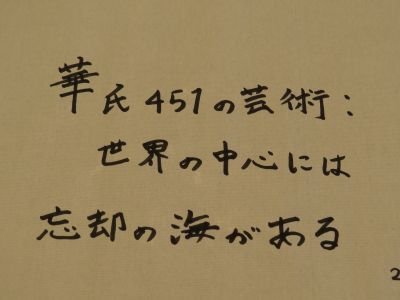 華氏451の芸術：
世界の中心には
忘却の海がある
2